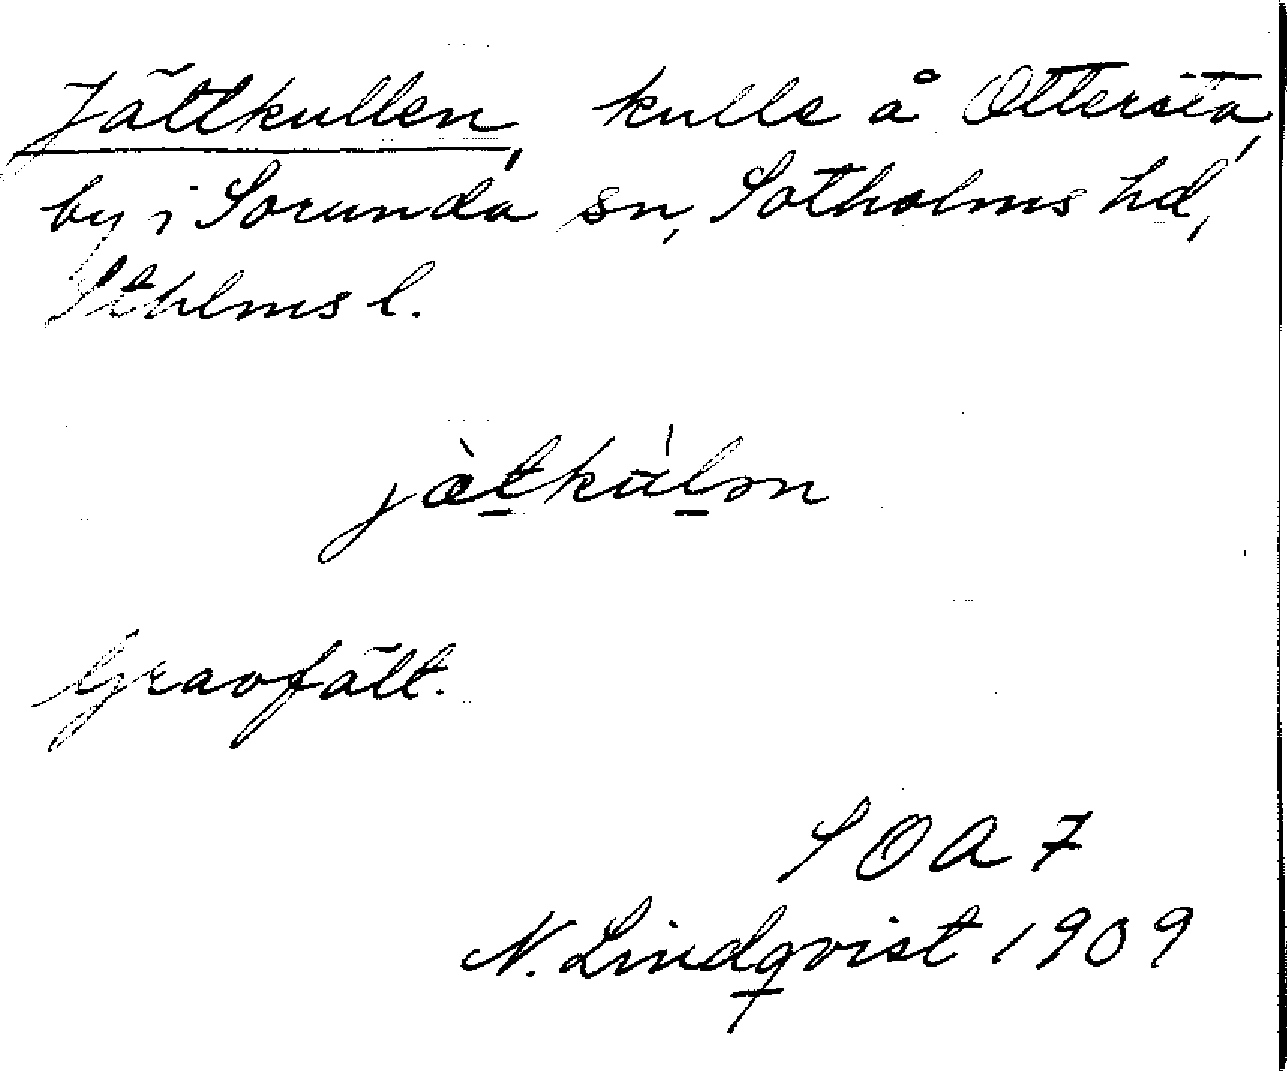 Jättkullen, kulle å Ottersta,
by i Sorunda sn, Sotholms hd,
Sthlms l.
jæ̀tkùlᵊn
Gravfält.
SOA 7
N. Lindqvist 1909